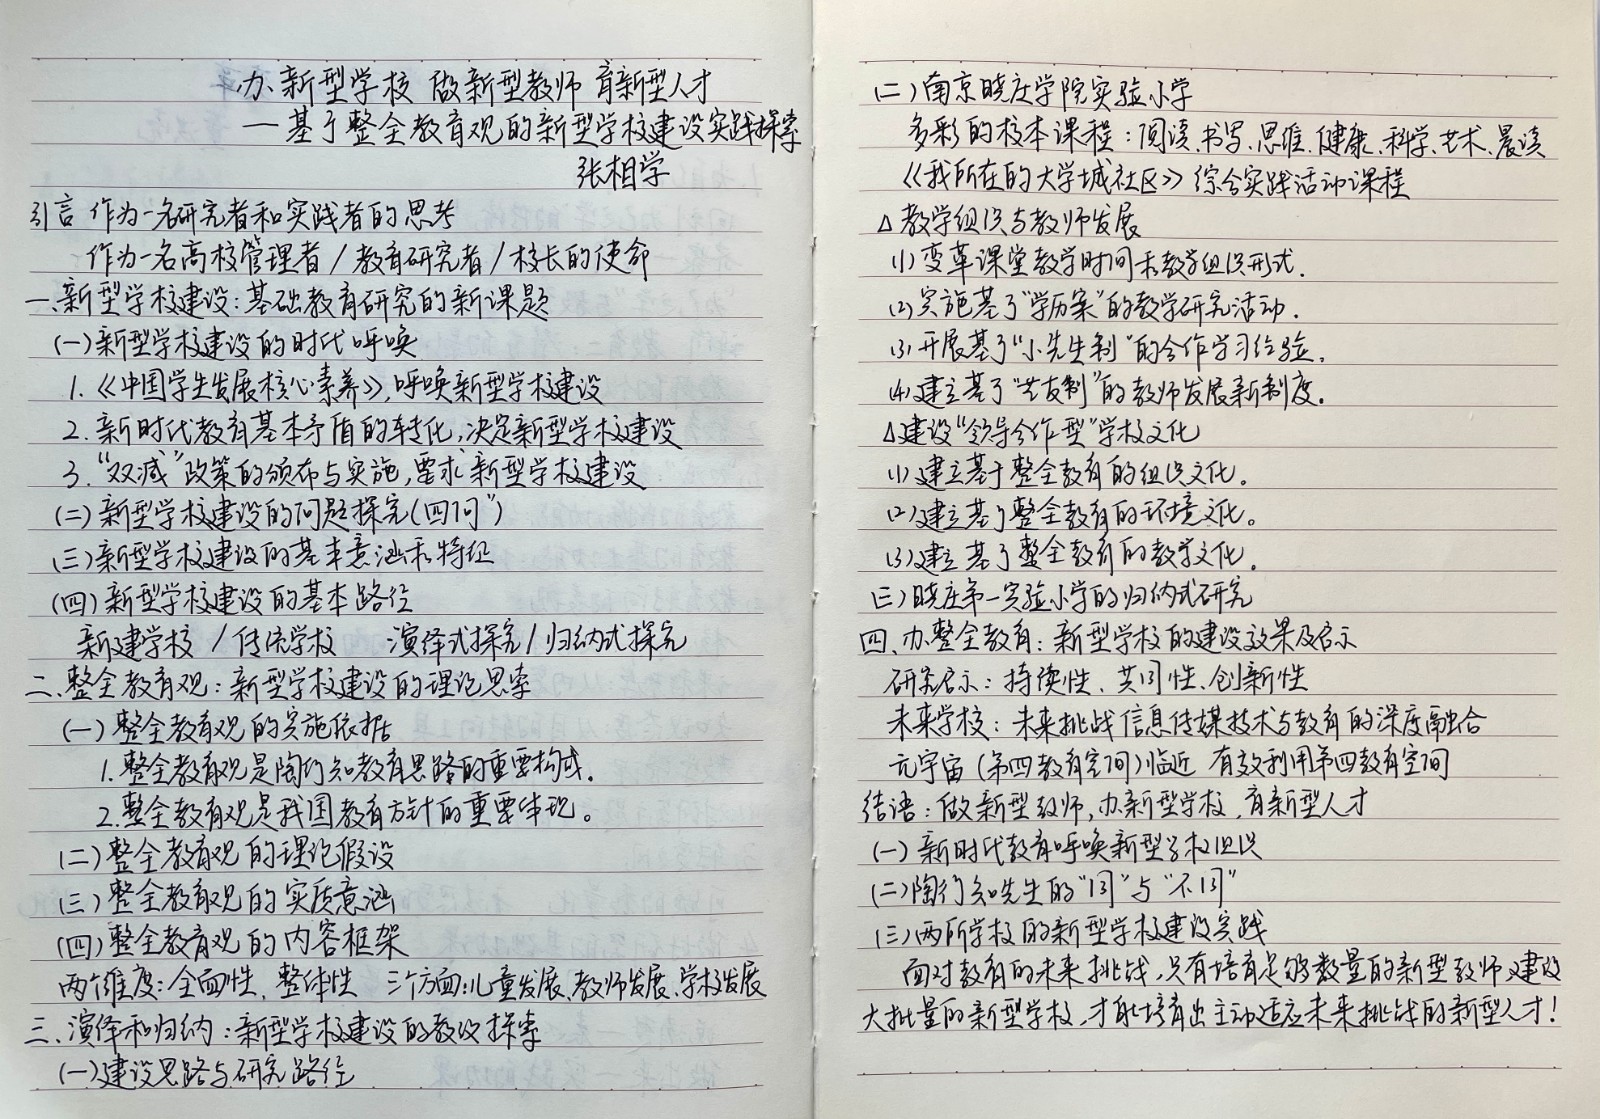 办新型学校 做新型教师 育新型人才
—基于整全教育观的新型学校建设实践探索
张相学
引言 作为一名研究者和实践者的思考
作为一名高校管理者/教育研究者/校长的使命
一、新型学校建设:基础教育研究的新课题
(一)新型学校建设的时代呼唤
1.《中国学生发展核心素养》,呼唤新型学校建设
2.新时代教育基本矛盾的转化,决定新型学校建设
3.“双减”政策的颁布与实施,要求新型学校建设
(二)新型学校建设的问题探究(四问”)
(三)新型学校建设的基本意涵和特征
(四)新型学校建设的基本路径
新建学校/传统学校 演绎式探究/归纳式探究
二、整全教育观:新型学校建设的理论思索
(一)整全教育观的实施依据
1.整全教育观是陶行知教育思路的重要构成.
2.整全教育观是我国教育方针的重要体现。
(二)整全教育观的理论假设
(三)整全教育观的实质意涵
(四)整全教育观的内容框架
两个维度:全面性、整体性 三个方面:儿童发展、教师发展、学校发展
三、演绎和归纳:新型学校建设的教改探索
(一)建设思路与研究路径
(二)南京晓庄学院实验小学
多彩的校本课程:阅读、书写、思维、健康、科学、艺术、晨读
《我所在的大学城社区》综合实践活动课程
△教学组织与教师发展
(1)变革课堂教学时间和教学组织形式.
(2)实施基于“学历案”的教学研究活动.
(3)开展基于“小先生制”的合作学习经验.
(4)建立基于“艺友制”的教师发展新制度.
△建设“领导合作型”学校文化
(1)建立基于整全教育的组织文化。
(2)建立基于整全教育的环境文化。
(3)建立基于整全教育的教学文化.
(三)晓庄第一实验小学的归纳式研究
四、办整全教育:新型学校的建设效果及启示
研究启示:持续性、共同性、创新性
未来学校:未来挑战信息传媒技术与教育的深度融合
元宇宙(第四教育空间)临近 有效利用第四教育空间
结语:做新型教师,办新型学校,育新型人才
(一)新时代教育呼唤新型学校组织
(二)陶行知先生的“同”与“不同”
(三)两所学校的新型学校建设实践
面对教育的未来挑战,只有培育足够数量的新型教师,建设
大批量的新型学校,才能培育出主动适应未来挑战的新型人才!